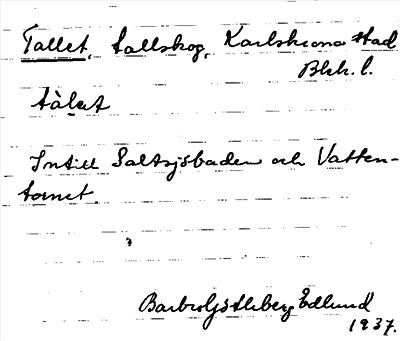 Tallet, tallskog, Karlskrona stad
Blek. l.
tàlet
Intill Saltsjöbaden och Vatten-
tornet.
Edlund
1937.